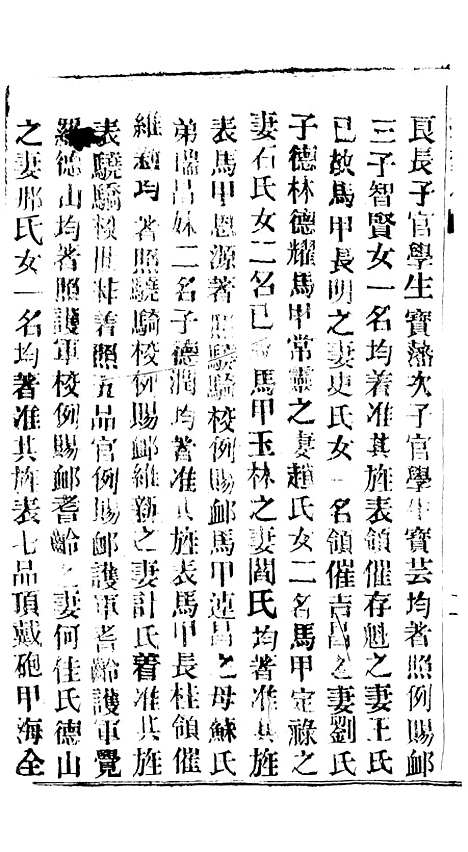 良長子官學生寶蓀次子官學生寶芸均著照例賜卹
三子智賢女一名均着准其旌表領催存魁之妻王氏
已故馬甲長明之妻吏氏女一名領催吉昌之妻劉氏
子德林德耀馬甲常靈之妻趙氏女二名馬甲定祿之
妻石氏女二名已故馬甲玉林之妻閻氏均著准其旌
表馬甲恩源著照驍騎校例賜卹馬甲連昌之母蘇氏
弟瑞昌妹二名子德潤均著准其旌表馬甲長桂領催
維新均著照驍騎校例賜卹維新之妻計氏着准其旌
表驍騎校世材着照五品官例賜卹護軍耆齡護軍覺
羅德山均著照護軍校例賜卹耆齡之妻何佳氏德山
之妻那氏女一名均著准其旌表七品頂戴砲甲海全